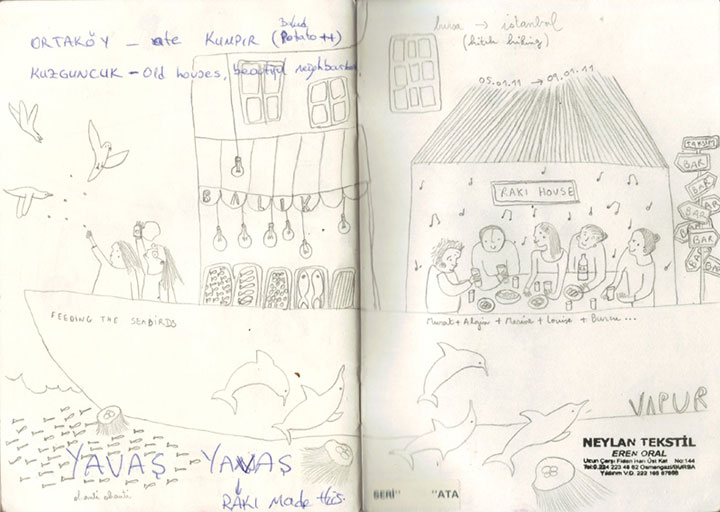 Baked
ORTAKÖY – ate KUMPIR (Potato ++)
KUZGUNCUK – Old houses, beautiful
BALIK
FEEDING THE SEABIRDS
YAVAŞ YAVAŞ
RAKI made this.
bursa → istanbul
(hitch hiking)
05.01.11 → 09.01.11
RAKI HOUSE
TAKSIM
BAR
BAR
BAR
BAR
BAR
BAR
Murat + + + Louise + Burcu ...
VAPUR
NEYLAN TEKSTİL
EREN ORAL
Uzun Çarşı Fidan Han Üst Kat No:144
Tel:0.224 223 48 62 Osmangazi/BURSA
Yıldırım V.D.
SERI" "ATA